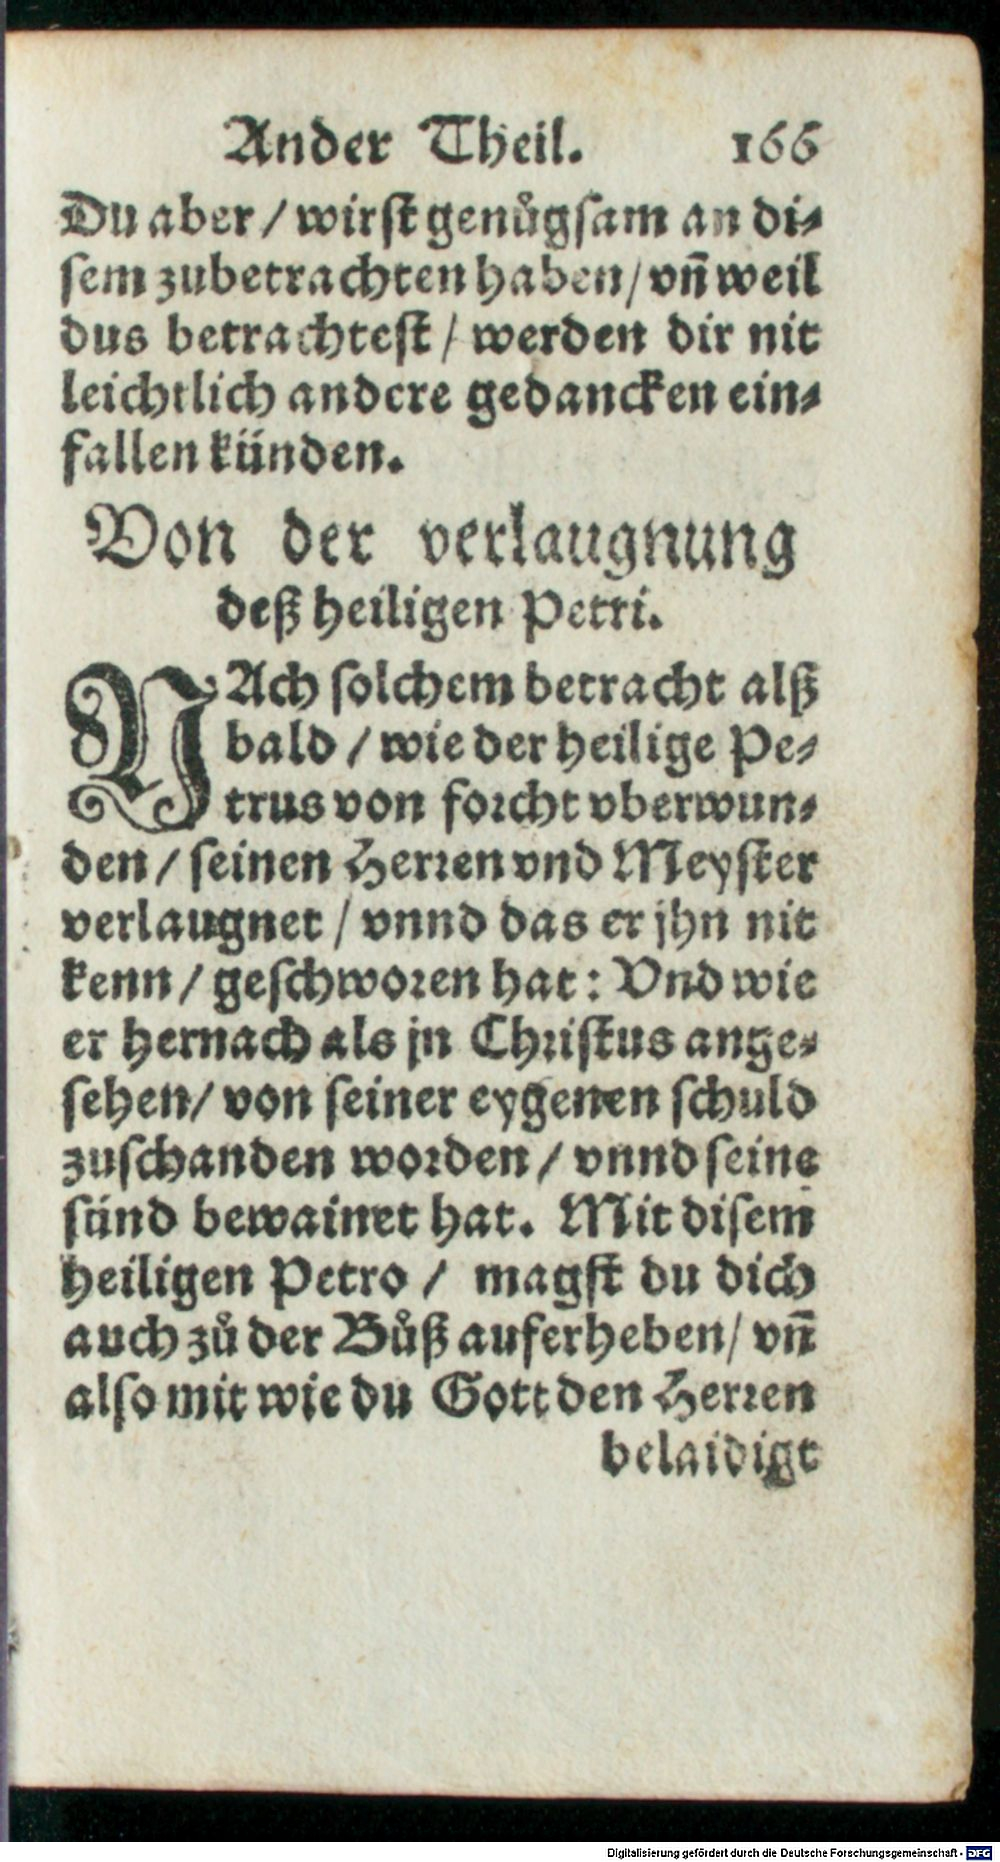 Ander Theil. 166
Du aber / wirst genůgsam an di⸗
sem zubetrachten haben / vñ weil
dus betrachtest / werden dir nit
leichtlich andere gedancken ein⸗
fallen künden.
Von der verlaugnung
deß heiligen Petri.
NAch solchem betracht alß
bald / wie der heilige Pe⸗
trus von forcht vberwun⸗
den / seinen Herren vnd Meyster
verlaugnet / vnnd das er jhn nit
kenn / geschworen hat: Vnd wie
er hernach als jn Christus ange⸗
sehen / von seiner eygenen schuld
zuschanden worden / vnnd seine
sünd bewainet hat. Mit disem
heiligen Petro / magst du dich
auch zů der Bůß auferheben / vñ
also mit wie du Gott den Herren
belaidigt
Digitalisierung gefördert durch die Deutsche Forschungsgemeinschaft - DFG